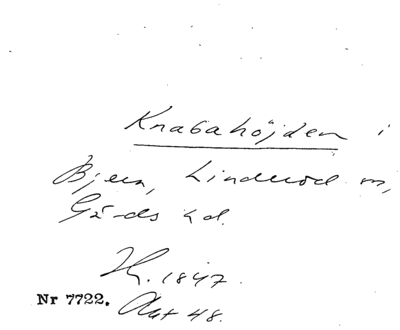 Knabahöjden i
Bjera, Linderöd m,
Gärds hd.
1847.
Nr 7722. Akt 48.